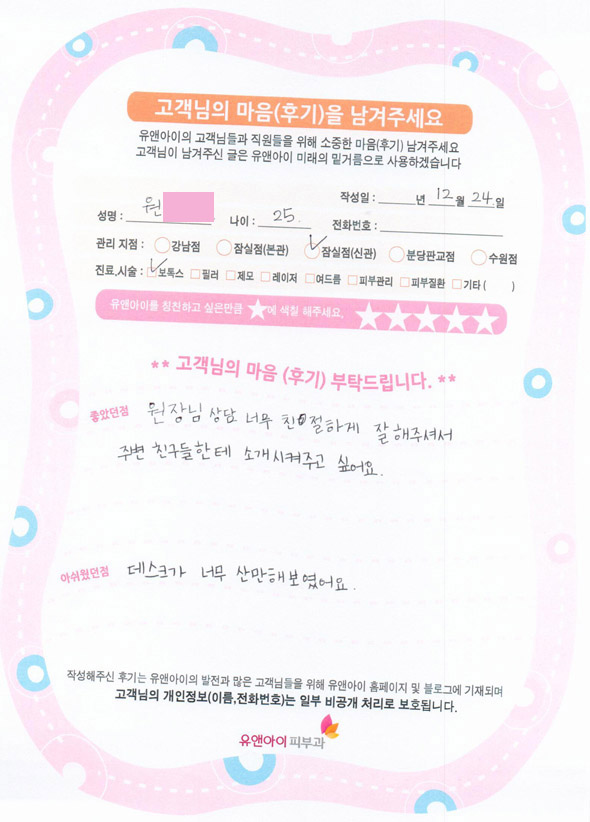 고객님의 마음(후기)을 남겨주세요
유앤아이의 고객님들과 직원들을 위해 소중한 마음(후기) 남겨주세요
고객님이 남겨주신 글은 유앤아이 미래의 밑거름으로 사용하겠습니다
작성일 : 년 12 월 24 일
성명 : 원 나이 : 25 전화번호 :
관리 지점 : 강남점 잠실점(본관) 잠실점(신관) 분당판교점 수원점
진료,시술 : 보톡스 필러 제모 레이저 여드름 피부관리 피부질환 기타 ( )
유앤아이를 칭찬하고 싶은만큼 ★에 색칠 해주세요. ★★★★★
** 고객님의 마음 (후기) 부탁드립니다. **
좋았던점 원장님 상담 너무 친절하게 잘해주셔서
주변 친구들한테 소개시켜주고 싶어요.
아쉬웠던점 데스크가 너무 산만해보였어요.
작성해주신 후기는 유앤아이의 발전과 많은 고객님들을 위해 유앤아이 홈페이지 및 블로그에 기재되며
고객님의 개인정보(이름,전화번호)는 일부 비공개 처리로 보호됩니다.
유앤아이피부과